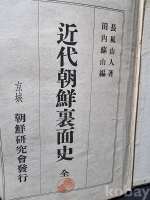 長風山人著
田内蘇山編
近代朝鮮裏面史 全
京城 朝鮮研究會發行
kobay